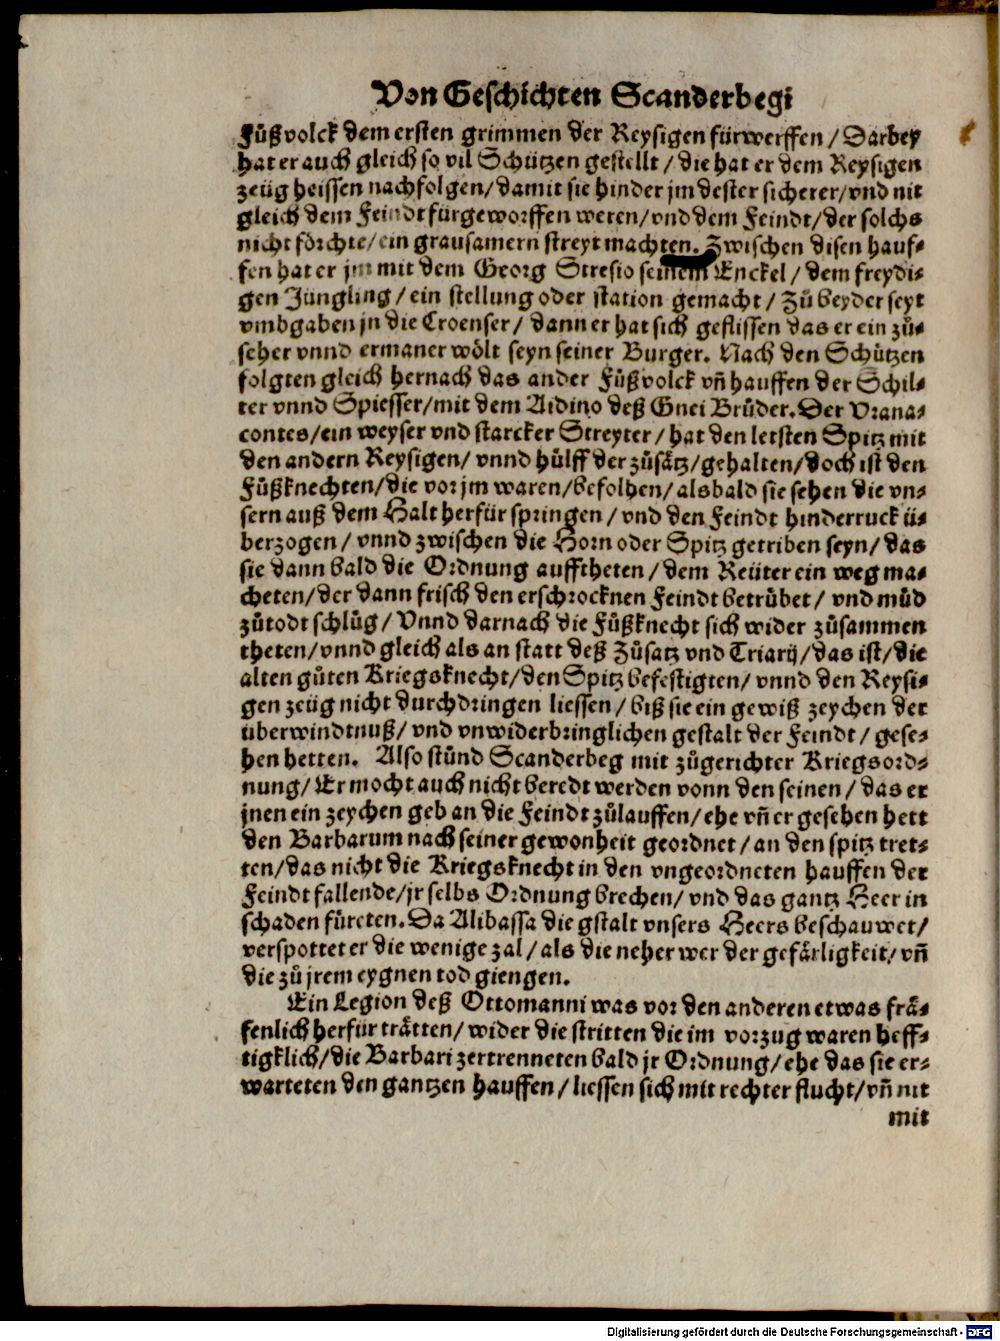 Von Geschichten Scanderbegi
Fůßvolck dem ersten grimmen der Reysigen fürwerffen / Darbey
hat er auch gleich so vil Schützen gestellt / die hat er dem Reysigen
zeüg heissen nachfolgen / damit sie hinder jm dester sicherer / vnd nit
gleich dem Feindt fürgeworffen weren / vnd dem Feindt / der solchs
nicht förchte / ein grausamern streyt machten. Zwischen disen hauf-
fen hat er jm mit dem Georg Stresio seinem Enckel / dem freydi-
gen Jüngling / ein stellung oder station gemacht / Zů beyder seyt
vmbgaben jn die Croenser / dann er hat sich geflissen das er ein zů-
seher vnnd ermaner wölt seyn seiner Burger. Nach den Schützen
folgten gleich hernach das ander Fůßvolck vñ hauffen der Schil-
ter vnnd Spiesser / mit dem Aidino deß Gnei Brůder. Der Vrana-
contes / ein weyser vnd starcker Streyter / hat den letsten Spitz mit
den andern Reysigen / vnnd hülff der zůsätz / gehalten / doch ist den
Fůßknechten / die vor jm waren / befolhen / alsbald sie sehen die vn-
sern auß dem Halt herfür springen / vnd den Feindt hinderruck ü-
berzogen / vnnd zwischen die Horn oder Spitz getriben seyn / das
sie dann bald die Ordnung aufftheten / dem Reüter ein weg ma-
cheten / der dann frisch den erschrocknen Feindt betrübet / vnd müd
zůtodt schlůg / Vnnd darnach die Fůßknecht sich wider zůsammen
theten / vnnd gleich als an statt deß Zůsatz vnd Triarij / das ist / die
alten gůten Kriegsknecht / den Spitz befestigten / vnnd den Reysi-
gen zeüg nicht durchdringen liessen / biß sie ein gewiß zeychen der
überwindtnuß / vnd vnwiderbringlichen gestalt der Feindt / gese-
hen hetten. Also stůnd Scanderbeg mit zůgerichter Kriegsord-
nung / Er mocht auch nicht beredt werden vonn den seinen / das er
jnen ein zeychen geb an die Feindt zůlauffen / ehe vñ er gesehen hett
den Barbarum nach seiner gewonheit geordnet / an den spitz tret-
ten / das nicht die Kriegsknecht in den vngeordneten hauffen der
Feindt fallende / jr selbs Ordnung brechen / vnd das gantz Heer in
schaden füreten. Da Alibassa die gstalt vnsers Heers beschauwet /
verspottet er die wenige zal / als die neher wer der gefärligkeit / vñ
die zů jrem eygnen tod giengen.
Ein Legion deß Ottomanni was vor den anderen etwas frä-
fenlich herfür trätten / wider die stritten die im vorzug waren heff-
tigklich / die Barbari zertrenneten bald jr Ordnung / ehe das sie er-
warteten den gantzen hauffen / liessen sich mit rechter flucht / vñ nit
mit
Digitalisierung gefördert durch die Deutsche Forschungsgemeinschaft - DFG